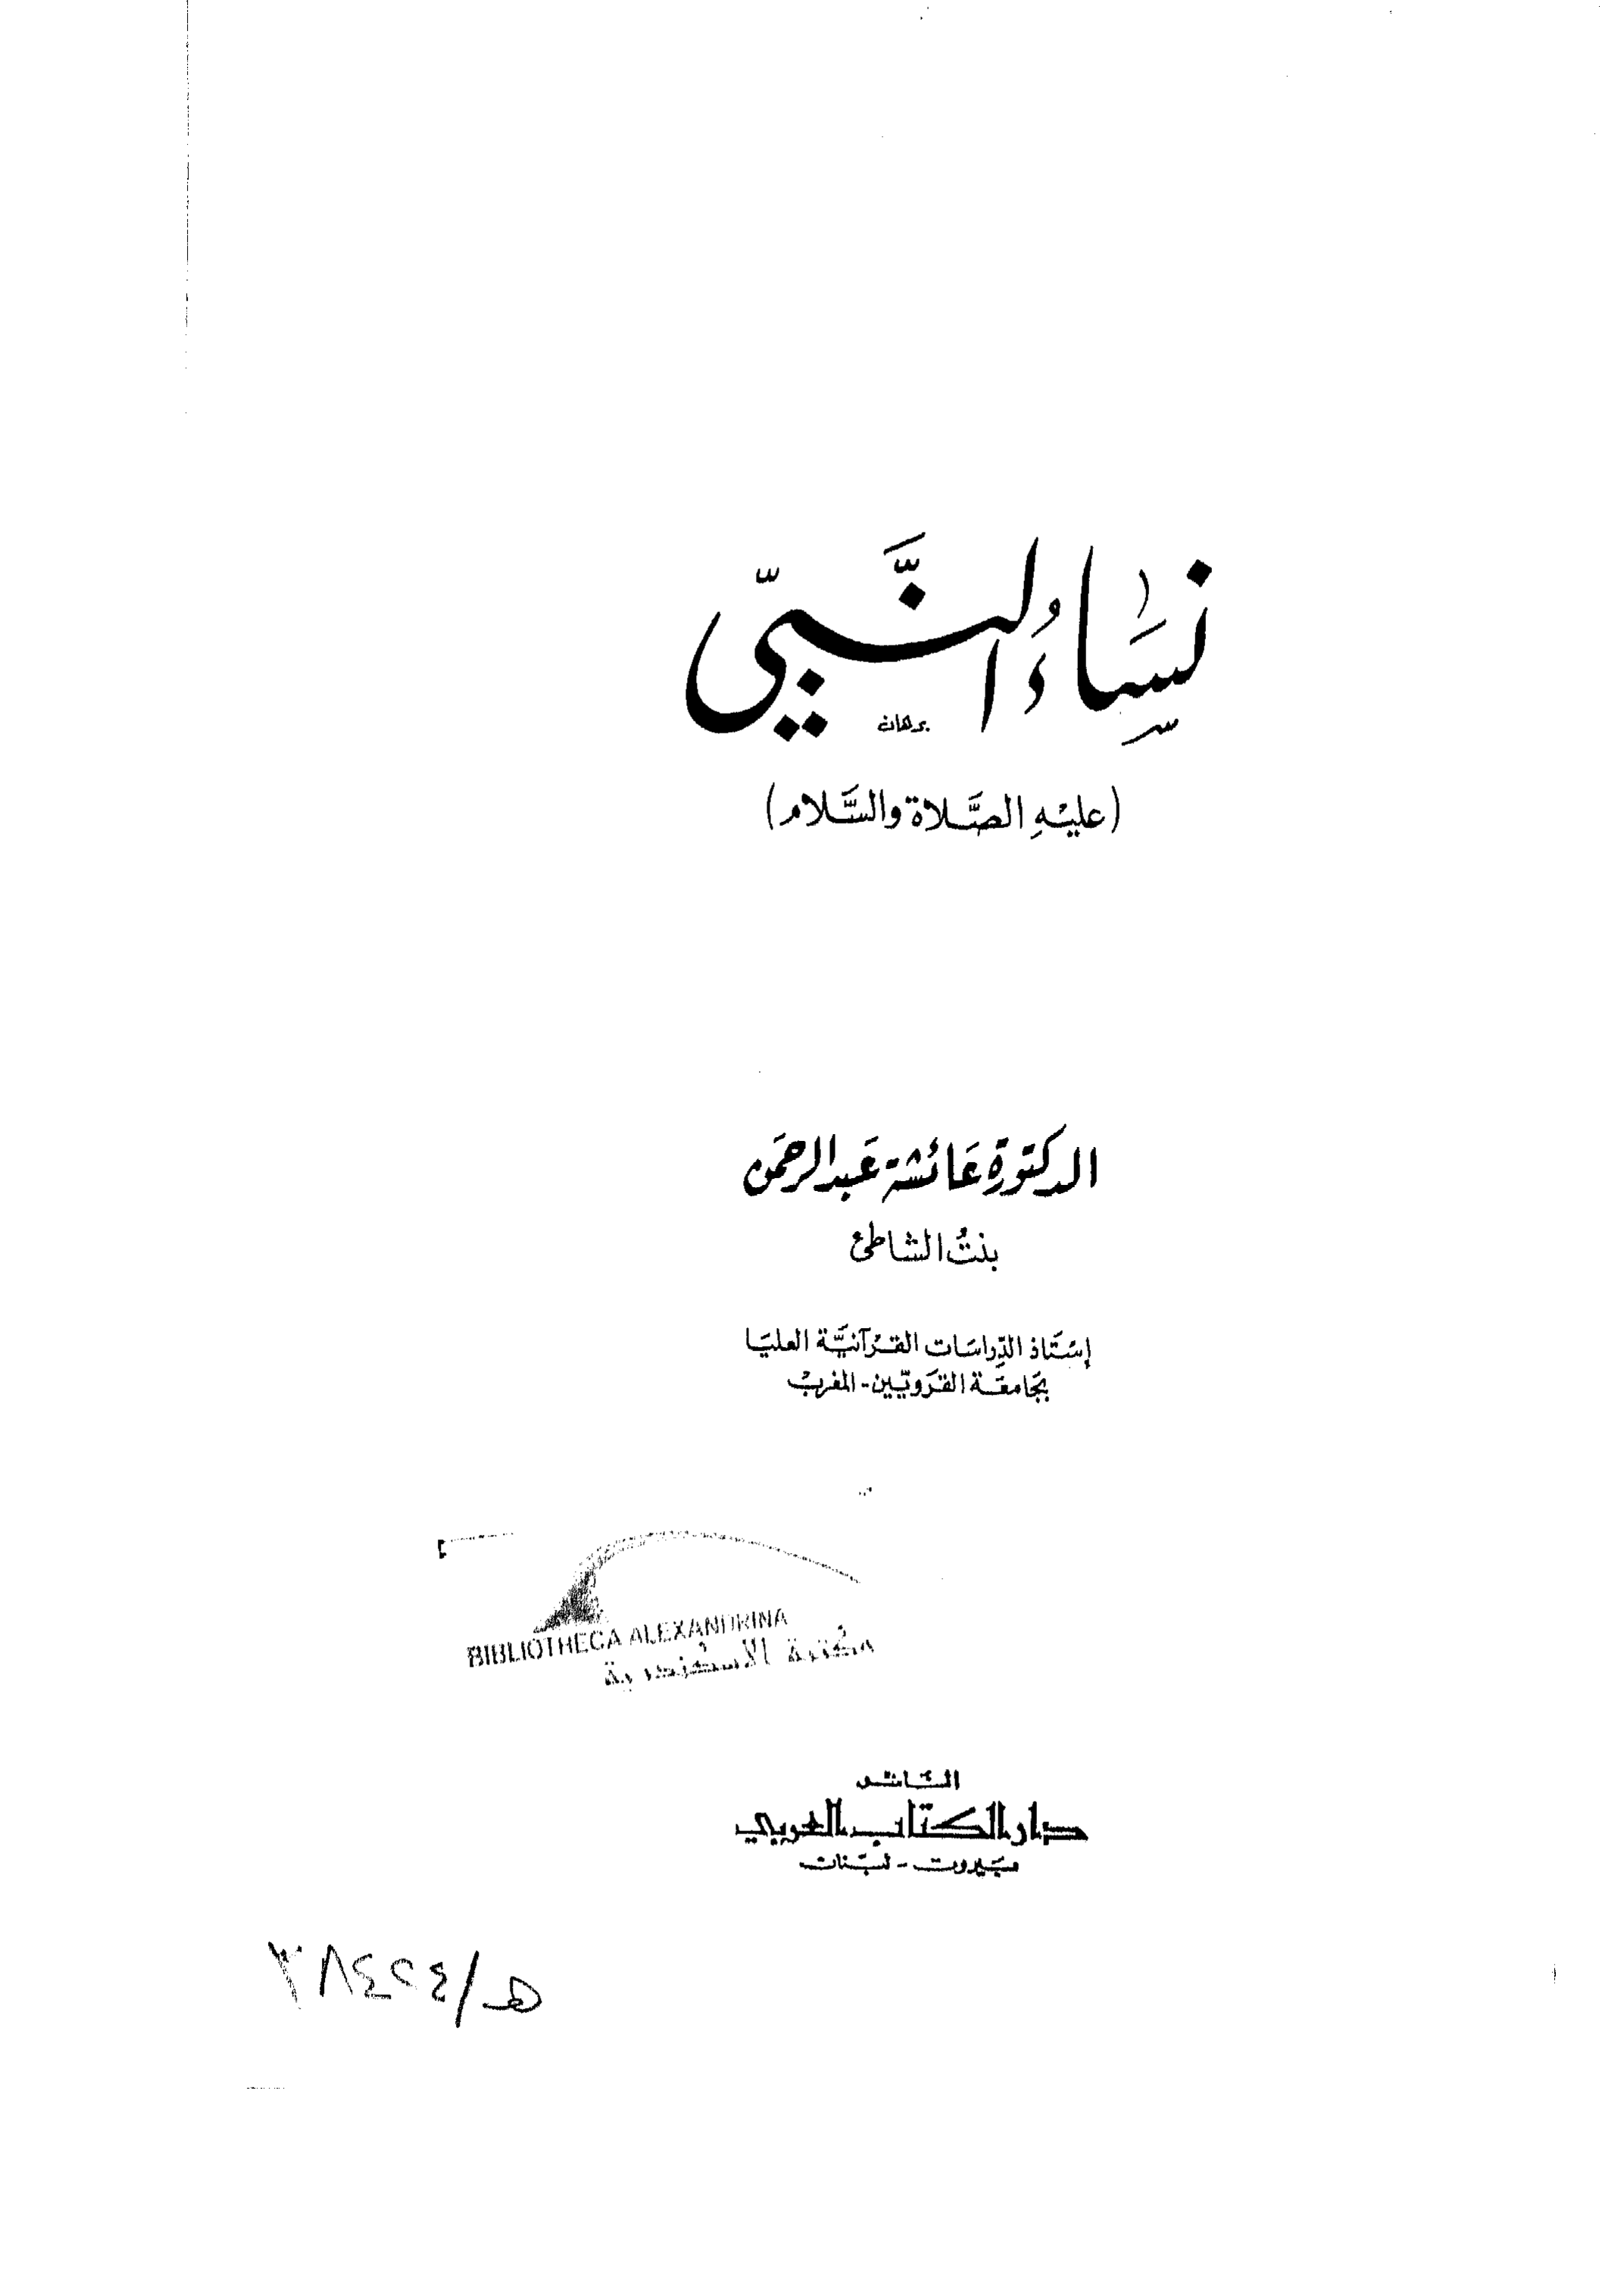 نِسَاءُ النَّبِيّ
برهان
(عليْهِ الصَّلاة والسَّلام)
الدكتورة عَائشة عَبد الرحمَن
بنتُ الشاطئ
إستَاذ الدِّراسَات القُرآنيَّة العليَا
بجَامعَة القرَويّين - المغربْ
BIBLIOTHECA ALEXANDRINA
مكتبة الاسكندرية
النَاشر
دار الكتاب العربي
بَيروت - لبْنان